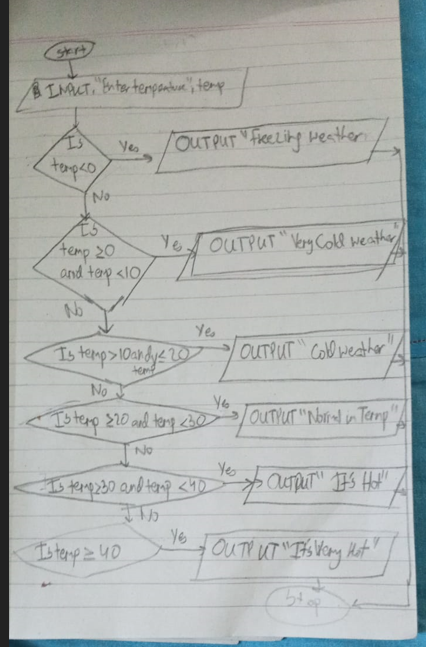 start
INPUT, "Enter temperature", temp
Is
temp<0
Yes
OUTPUT "Freezing weather
No
Is
temp ≥0
and temp <10
Yes
OUTPUT "Very Cold weather"
No
Is temp>10 and y≤20
temp
Yes
OUTPUT "Cold weather"
No
Is temp ≥20 and temp <30
Yes
OUTPUT "Normal in Temp"
No
Is temp≥30 and temp <40
Yes
OUTPUT "It's Hot"
No
Is temp ≥ 40
Yes
OUTPUT "It's Very Hot"
Stop